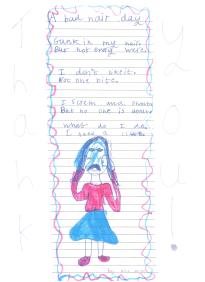 A bad hair day
Gunk in my hair.
But not every were.
I don't like it.
Not one bite.
I screm and shout
But no one is
what do I do,
I need a
Thank
you!
by